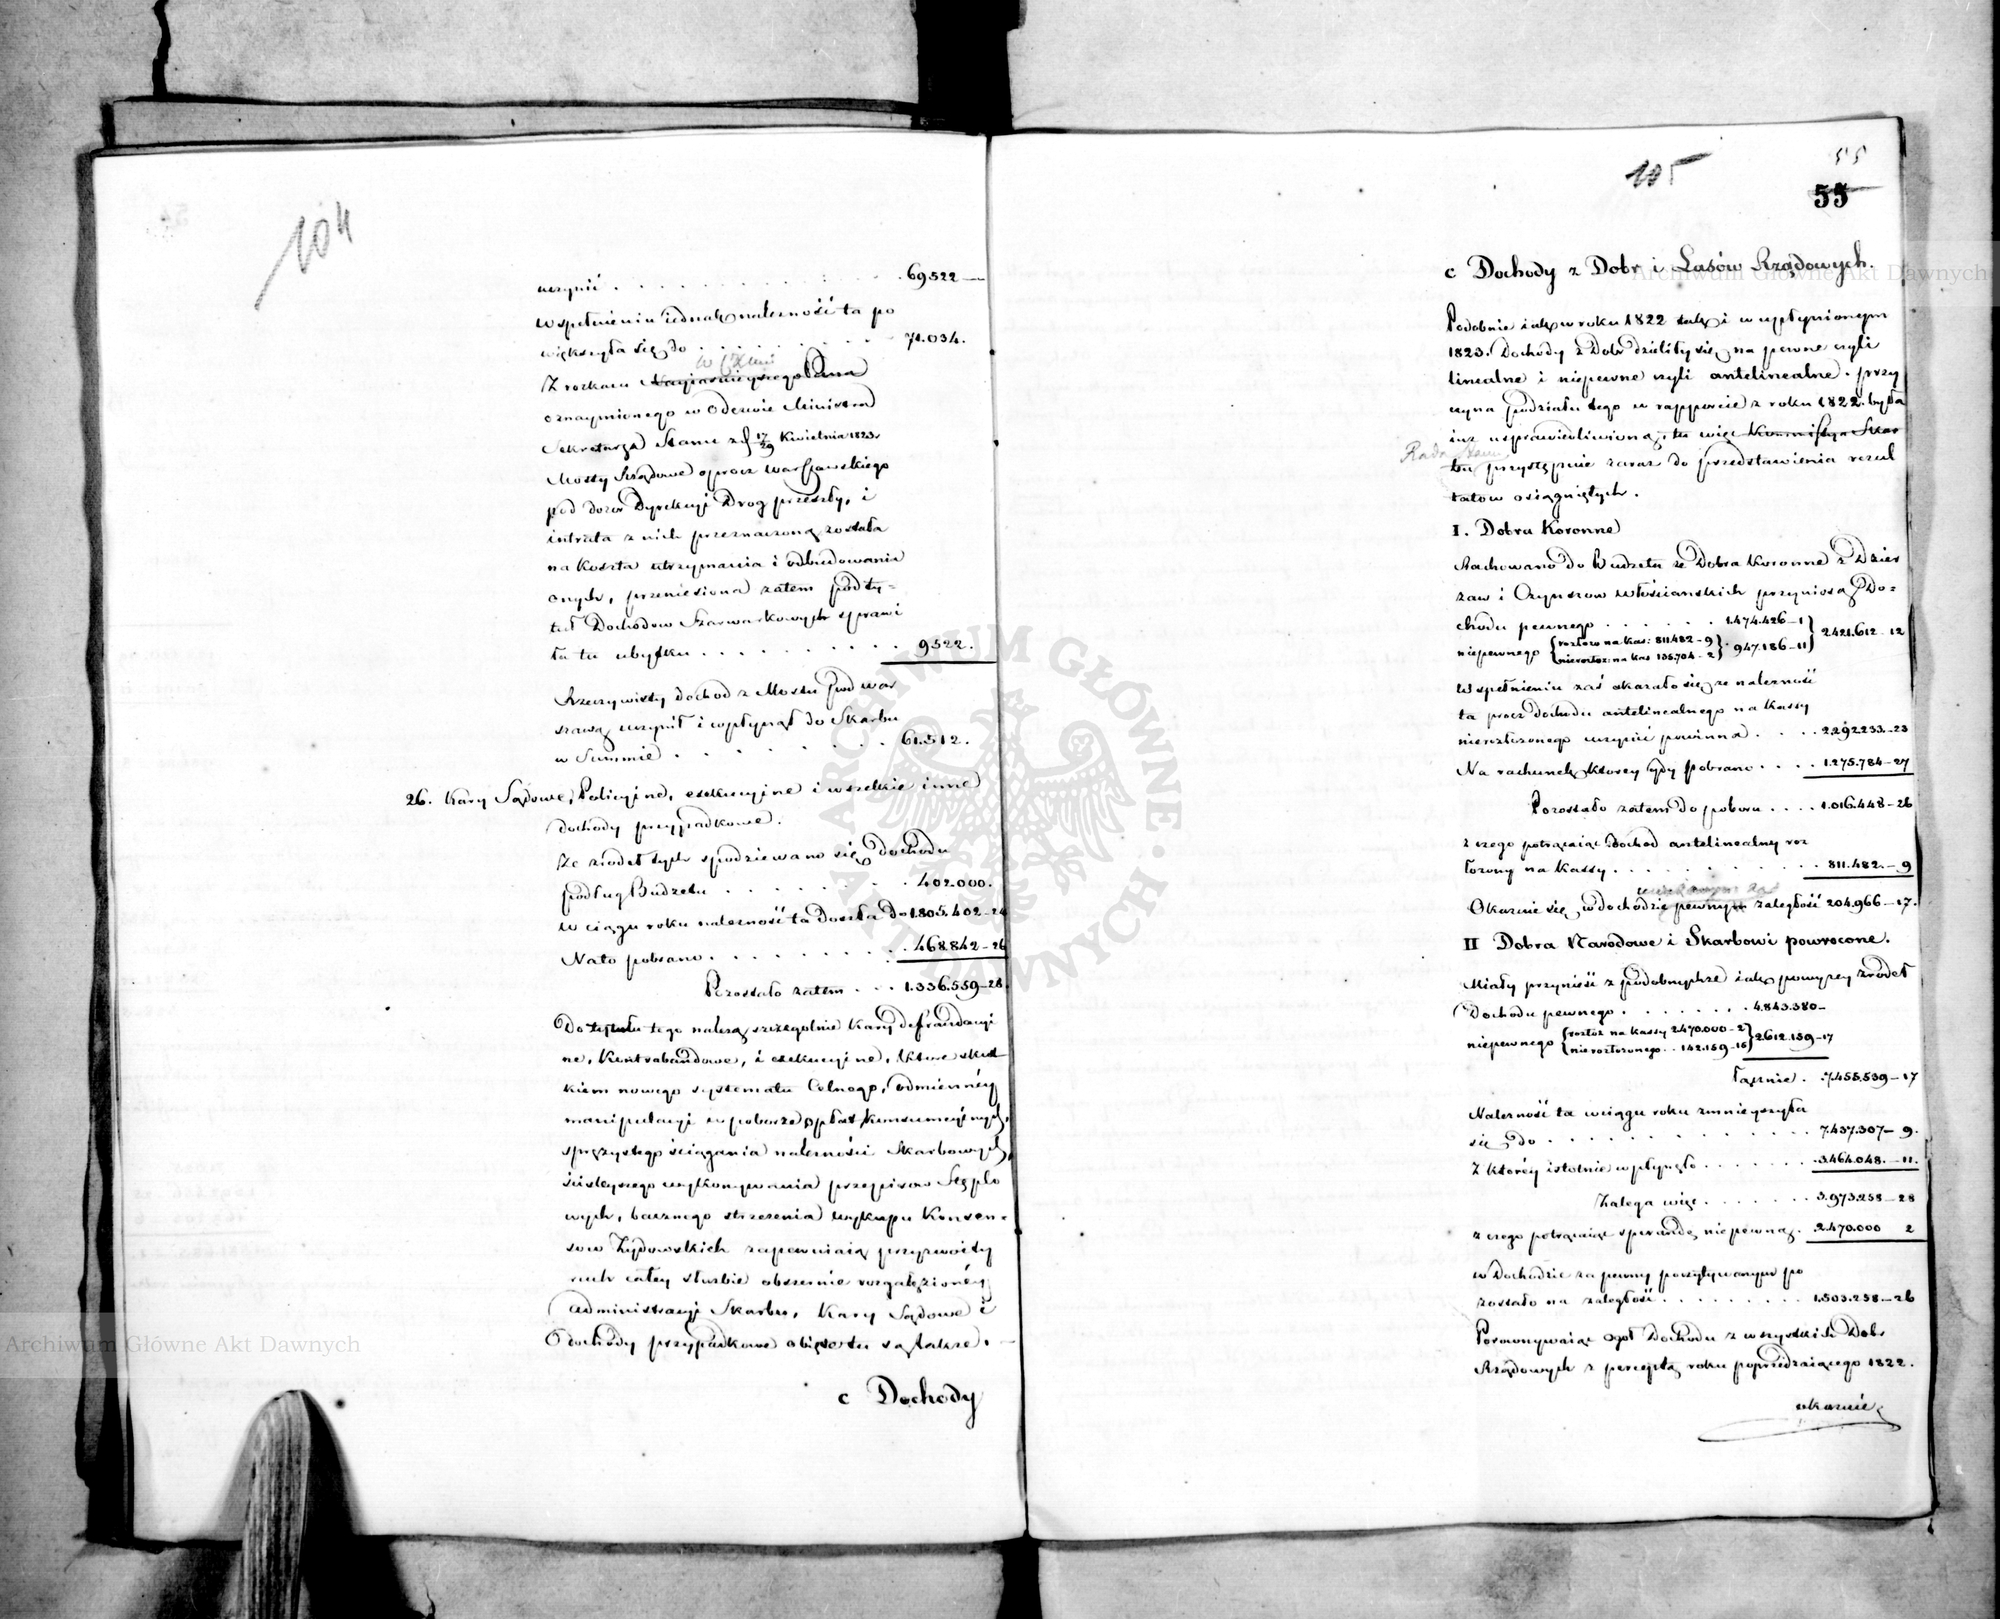 104
uczynić . . . . . . . . . . 69522 —
W spełnieniu iednak należność ta po
większyła się do . . . . . . . . 71.034.
Z rozkazu Nayiaśnieyszego Pana
oznaymionego w Odezwie Ministra
Sekretarza Stanu z d. 17/29 Kwietnia 1823.
Mosty Rządowe oprocz Warszawskiego
pod dozor Dyrekcyi Drog przeszły, i
intrata z nich przeznaczoną została
na koszta utrzymania i odbudowania
onych, przeniesiona zatem pod ty=
tuł Dochodow Szarwarkowych sprawi
ła tu ubytku . . . . . . . . . 9522.
Rzeczywisty dochod z Mostu pod War
szawą uczynił i wpłynął do Skarbu
w Summie . . . . . . . . . 61.512.
26. Kary Sądowe, Policyjne, exekucyjne i wszelkie inne
dochody przypadkowe.
Ze zrodeł tych spodziewano się dochodu
podług Budzetu . . . . . . . . 402.000.
W ciągu roku należność ta doszła do 1.805.402–24
Na to pobrano . . . . . . . . . 468.842–26
Pozostało zatem . . . 1.336.559–28.
Do tytułu tego należą szczególnie Kary defraudacyi
ne, Kontrabandowe, i exekucyjne, które skut
kiem nowego systematu Celnego, odmienney
manipulacyi w poborze opłat konsumcyjnych,
sprężystego ściągania należności Skarbowych,
ściśleyszego wykonywania przepisow Stęplo
wych, bacznego strzeżenia wykupu Konsen=
sow Żydowskich zapewniaią przyzwoity
ruch całey służbie obszernie rozgałęzioney
Administracyi Skarbu, Kary Sądowe i
dochody przypadkowe obięte tu są także. —
c Dochody
105
55
55
c Dochody z Dobr i Lasów Rządowych.
Podobnie iak w roku 1822 tak i w upłynionym
1823. Dochody z Dobr dzieliły się na pewne czyli
linealne i niepewne czyli antelinealne. przy
czyna podziału tego w rapporcie z roku 1822. była
iuż usprawiedliwioną, tu więc Kommissya Skar
Rada Stanu
bu przystępuie zaraz do przedstawienia rezul
tatow osiągniętych.
I. Dobra Koronne
Rachowano do Budzetu że Dobra Koronne z Dzier
żaw i Czynszow włościańskich przyniosą Do=
chodu pewnego . . . . . . 1.474.426–1
niepewnego {rozłożo na kas: 811.482–9 nierozłoż: na kas 135.704–2} 947.186–11} 2421.612–12
W spełnieniu zaś okazało się ze należność
ta procz dochodu antelinealnego na Kassy
nierozłożonego uczynić powinna . . . . 2.292.233.–23
Na rachunek którey gdy pobrano . . . . 1.275.784–27
Pozostało zatem do poboru . . . . 1.016.448–26
z czego potrąciaiąc Dochod antelinealny roz
łożony na Kassy . . . . . . . . . 811.482.–9
Okazuie się w dochodzie pewnym zaległość 204.966–17.
II Dobra Narodowe i Skarbowi powrocone.
Miały przynieść z podobnychże iak powyzey zrodeł
Dochodu pewnego . . . . . . . 4.843.380–
niepewnego {rozłoż na kassy 2.470.000–2 nierozłożonego . . 142.159–15} 2612.159–17
łącznie . 7.455.539–17
Należność ta w ciągu roku zmnieyszyła
się do . . . . . . . . . . . . 7.437.307–9.
Z którey istotnie wpłynęło . . . . . . 3.464.048.–11.
Zalega więc . . . . . . . 3.973.258–28
z czego potrąciaiąc sperandę niepewną . 2.470.000 2
w Dochodzie za pewny poczytywanym po
zostało na zaległość . . . . . . . . 1.503.258.–26
Porownywaiąc ogół Dochodu z wszystkich Dobr
Rządowych z perceptą roku poprzedzaiącego 1822.
okazuie